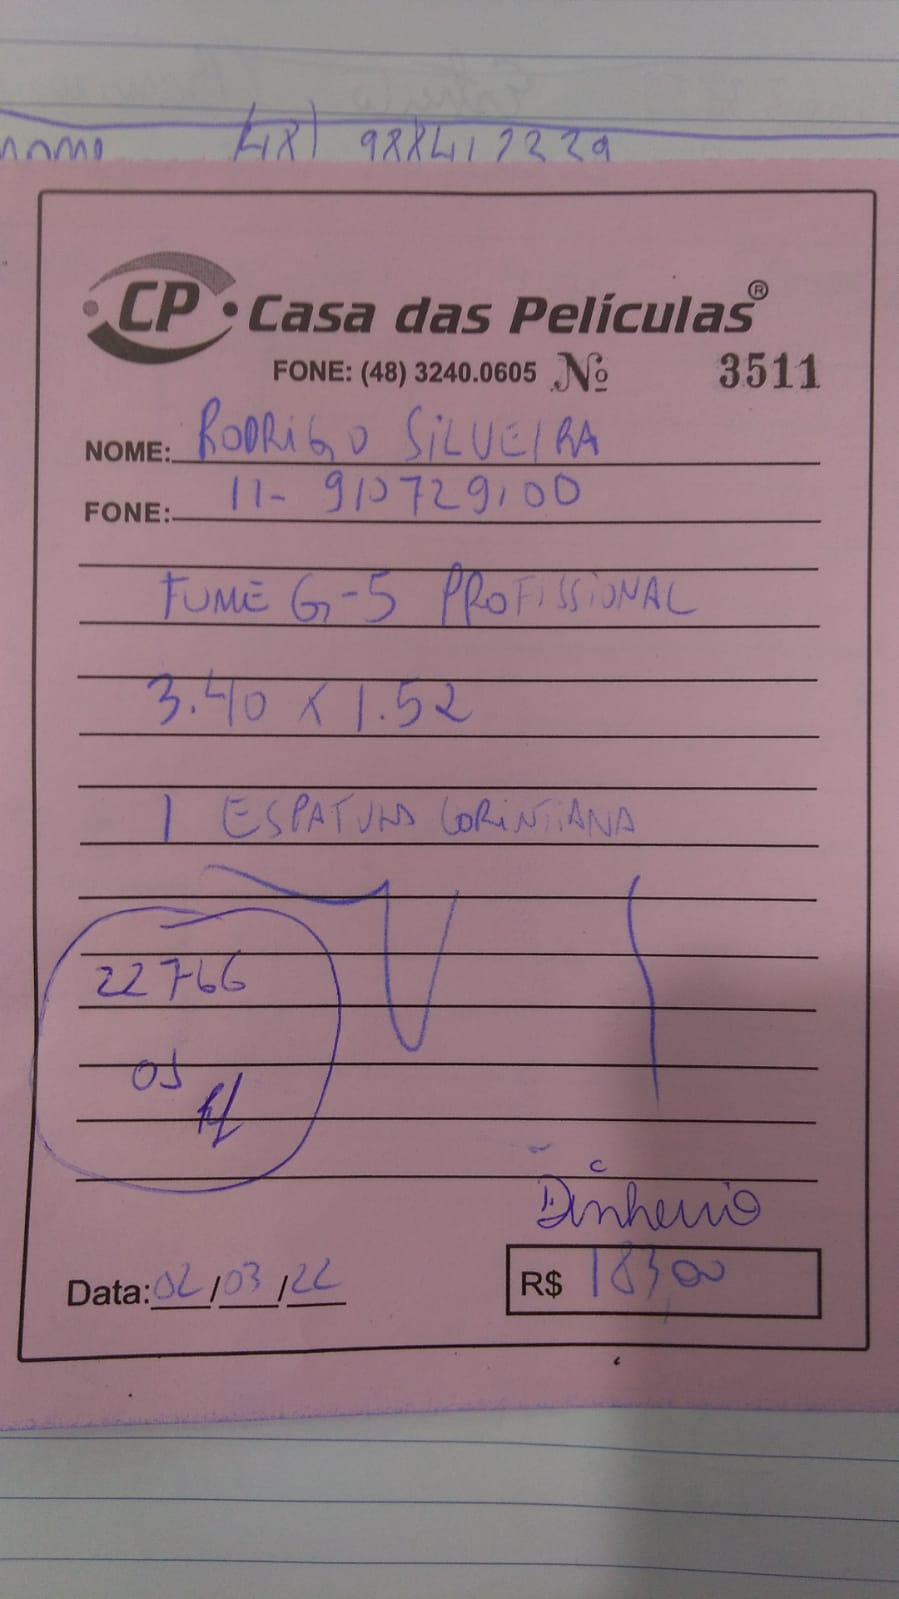 (48) 988412229
CP Casa das Películas®
FONE: (48) 3240.0605 Nº 3511
NOME: RODRIGO SILVEIRA
FONE: 11- 910729100
FUME G-5 PROFISSIONAL
3.40 x 1.52
1 ESPATULA CORINTIANA
22766
OJ
Dinheiro
Data: 02/03/22 R$ 183,00